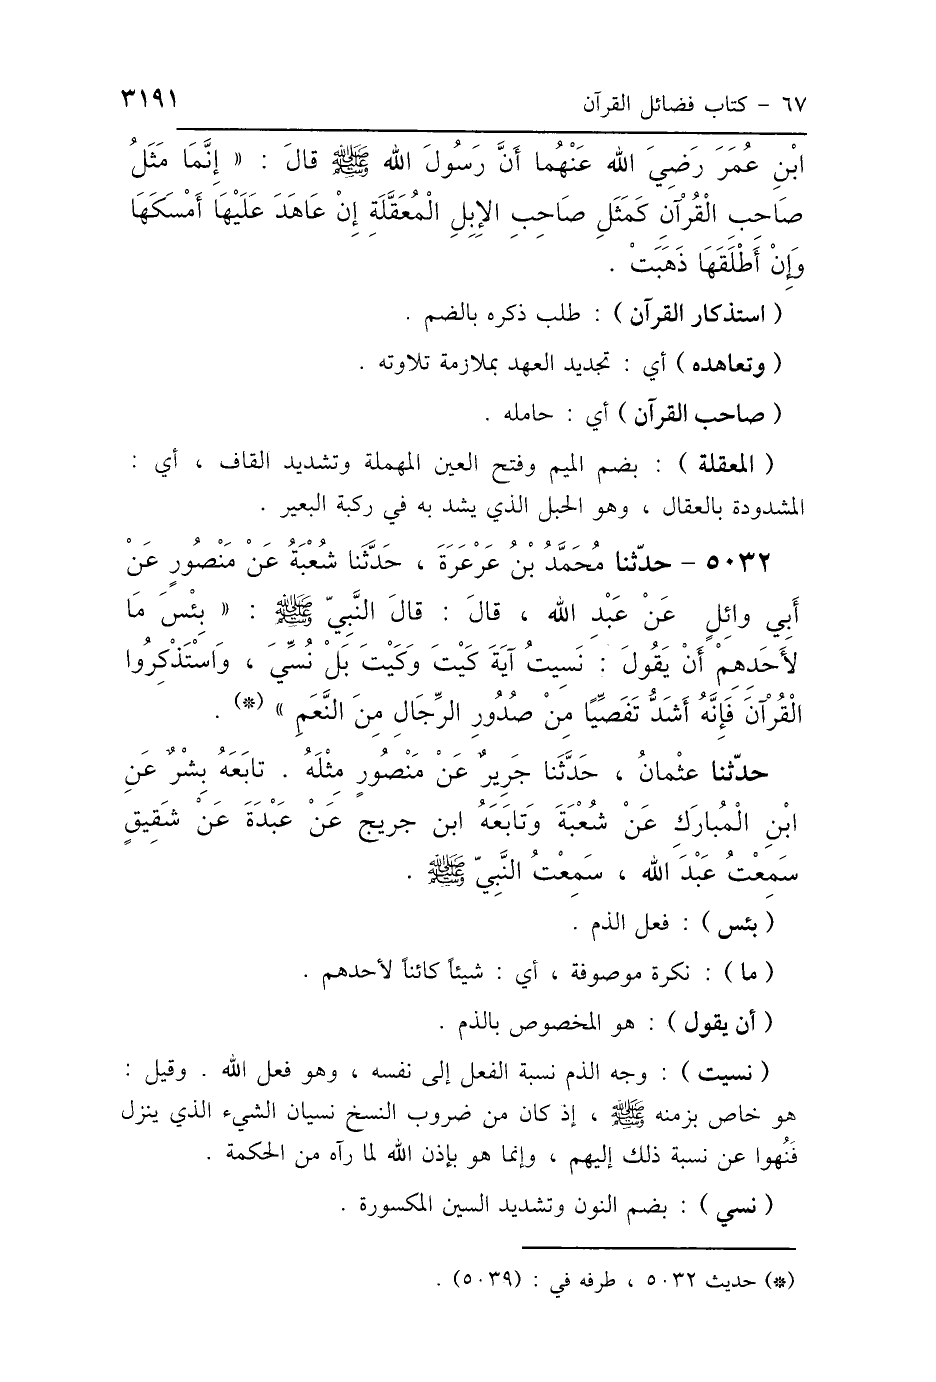 ٦٧ - كتاب فضائل القرآن ٣١٩١
ابْنِ عُمَرَ رَضِيَ الله عَنْهُما أَنَّ رَسُولَ الله ﷺ قالَ : « إِنَّمَا مَثَلُ
صَاحِبِ الْقُرْآنِ كَمَثَلِ صَاحِبِ الإِبِلِ الْمُعَقَّلَةِ إِنْ عَاهَدَ عَلَيْهَا أَمْسَكَهَا
وَإِنْ أَطْلَقَهَا ذَهَبَتْ .
( استذكار القرآن ) : طلب ذكره بالضم .
( وتعاهده ) أي : تجديد العهد بملازمة تلاوته .
( صاحب القرآن ) أي : حامله .
( المعقلة ) : بضم الميم وفتح العين المهملة وتشديد القاف ، أي :
المشدودة بالعقال ، وهو الحبل الذي يشد به في ركبة البعير .
٥٠٣٢ - حدّثنا مُحَمَّدُ بْنُ عَرْعَرَةَ ، حَدَّثَنا شُعْبَةُ عَنْ مَنْصُورٍ عَنْ
أَبِي وائلٍ عَنْ عَبْدِ الله ، قالَ : قالَ النَّبِيّ ﷺ : « بِئْسَ مَا
لأَحَدِهِمْ أَنْ يَقُولَ : نَسِيتُ آيَةَ كَيْتَ وَكَيْتَ بَلْ نُسِّيَ ، وَاسْتَذْكِرُوا
الْقُرْآنَ فَإِنَّهُ أَشَدُّ تَفَصِّيًا مِنْ صُدُورِ الرِّجَالِ مِنَ النَّعَمِ » (*) .
حدّثنا عثْمانُ ، حَدَّثَنا جَرِيرٌ عَنْ مَنْصُورٍ مِثْلَهُ . تابَعَهُ بِشْرٌ عَنِ
ابْنِ الْمُبارَكِ عَنْ شُعْبَةَ وَتابَعَهُ ابن جريج عَنْ عَبْدَةَ عَنْ شَقِيقٍ
سَمِعْتُ عَبْدَ الله ، سَمِعْتُ النَّبِيّ ﷺ .
( بئس ) : فعل الذم .
( ما ) : نكرة موصوفة ، أي : شيئاً كائناً لأحدهم .
( أن يقول ) : هو المخصوص بالذم .
( نسيت ) : وجه الذم نسبة الفعل إلى نفسه ، وهو فعل الله . وقيل :
هو خاص بزمنه ﷺ ، إذ كان من ضروب النسخ نسيان الشيء الذي ينزل
فَنُهوا عن نسبة ذلك إليهم ، وإنما هو بإذن الله لما رآه من الحكمة .
( نسي ) : بضم النون وتشديد السين المكسورة .
(*) حديث ٥٠٣٢ ، طرفه في : (٥٠٣٩) .